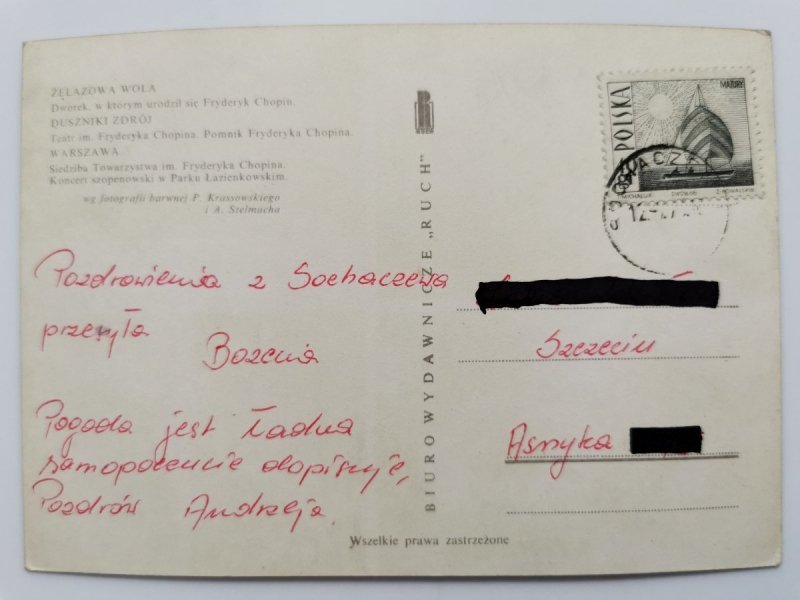 ŻELAZOWA WOLA
Dworek, w którym urodził się Fryderyk Chopin.
DUSZNIKI ZDRÓJ
Teatr im. Fryderyka Chopina. Pomnik Fryderyka Chopina.
WARSZAWA
Siedziba Towarzystwa im. Fryderyka Chopina.
Koncert szopenowski w Parku Łazienkowskim.
wg fotografii barwnej P. Krassowskiego
i A. Szelmacha
Pozdrowienia z Sochaczewa
przesyła
Bożena
Pogoda jest ładna
samopoczucie dopisuje,
Pozdrów Andrzeja.
BIURO WYDAWNICZE „RUCH"
RUCH
POLSKA
MAZURY
SOCHACZEW
Szczecin
Asnyka
Wszelkie prawa zastrzeżone